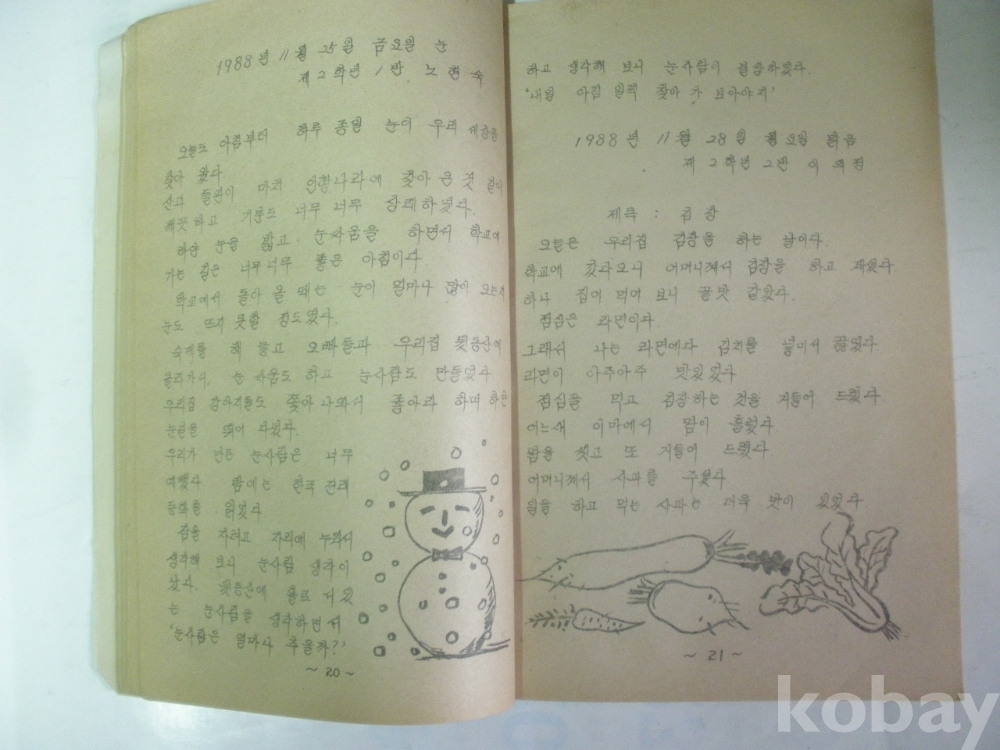 1988년 11월 25일 금요일 눈
제2학년 1반 노현숙
오늘도 아침부터 하루 종일 눈이 우리 세상을
찾아 왔다.
산과 들판이 마치 인형나라에 찾아 온 것 같이
깨끗하고 기분도 너무 너무 상쾌하였다.
하얀 눈을 밟고 눈싸움을 하면서 학교에
가는 길은 너무너무 좋은 아침이다
학교에서 돌아 올 때는 눈이 얼마나 많이 오는지
눈도 뜨지 못할 정도였다.
숙제를 해 놓고 오빠들과 우리집 뒷동산에
올라가서, 눈 싸움도 하고 눈사람도 만들었다
우리집 강아지들도 쫓아 나와서 좋아라 하며 하얀
눈밭을 뛰어 다녔다.
우리가 만든 눈사람은 너무
예뻤다 밤에는 한국 전래
동화를 읽었다
잠을 자려고 자리에 누워서
생각해 보니 눈사람 생각이
났다. 뒷동산에 홀로 서 있
는 눈사람을 생각하면서
'눈사람은 얼마나 추울까?'
~ 20 ~
하고 생각해 보니 눈사람이 불쌍하였다.
'내일 아침 일찍 찾아 가 보아야지'
1988년 11월 28일 월요일 맑음
제2학년 2반 이
제목 : 김장
오늘은 우리집 김장을 하는 날이다.
학교에 갔다오니 어머니께서 김장을 하고 계셨다
하나 집어 먹어 보니 꿀맛 같았다.
점심은 라면이다.
그래서 나는 라면에다 김치를 넣어서 끓였다
라면이 아주아주 맛있었다
점심을 먹고 김장하는 것을 거들어 드렸다.
어느새 이마에서 땀이 흘렀다
땀을 씻고 또 거들어 드렸다
어머니께서 사과를 주셨다
일을 하고 먹는 사과는 더욱 맛이 있었다
~ 21 ~
kobay